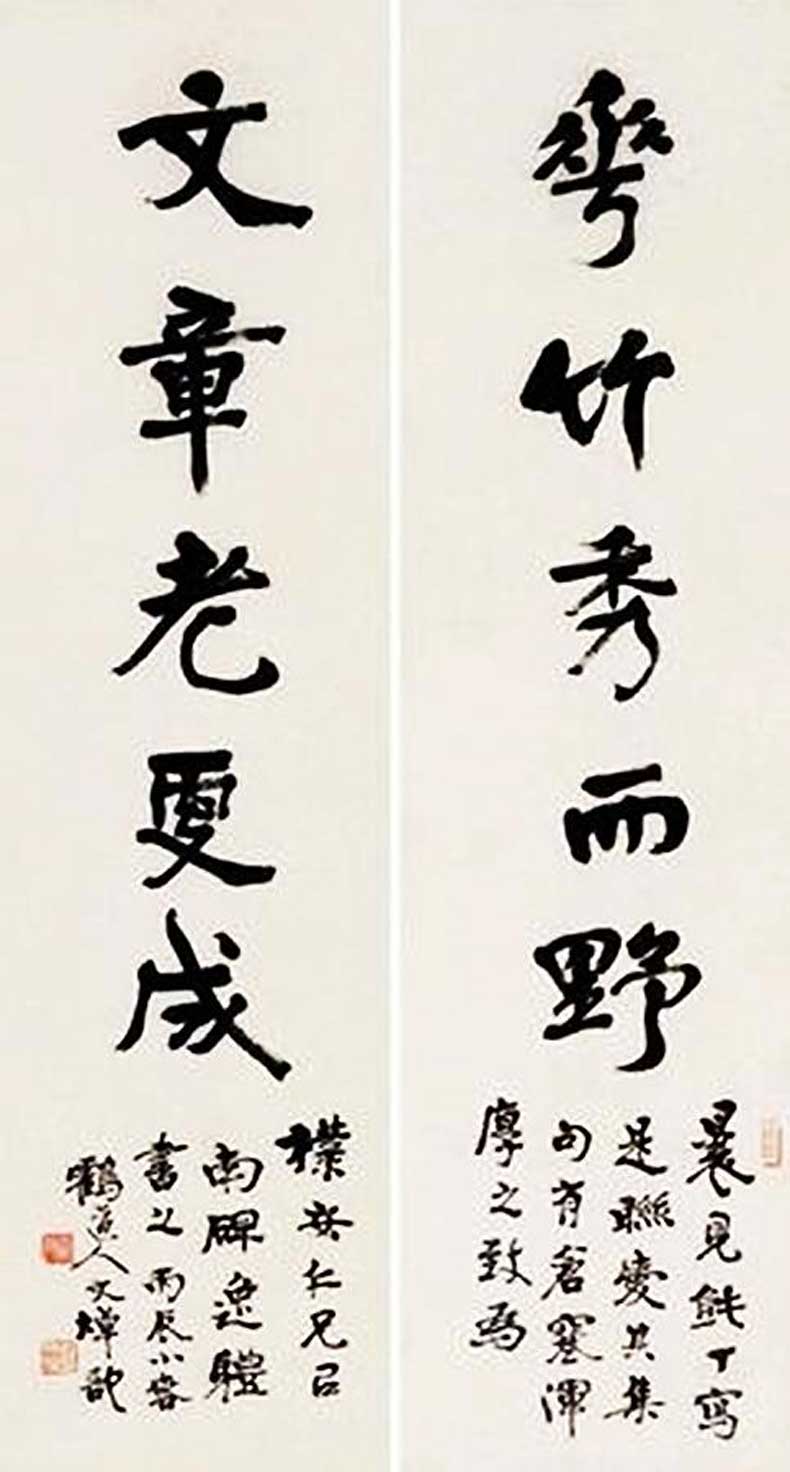 華竹秀而野
曩見鈍丁寫
是聯愛其集
句有蒼寒渾
厚之致為
文章老更成
樸安仁兄㠯
南碑逸體
書之丙辰小寒
鶴道人文焯記